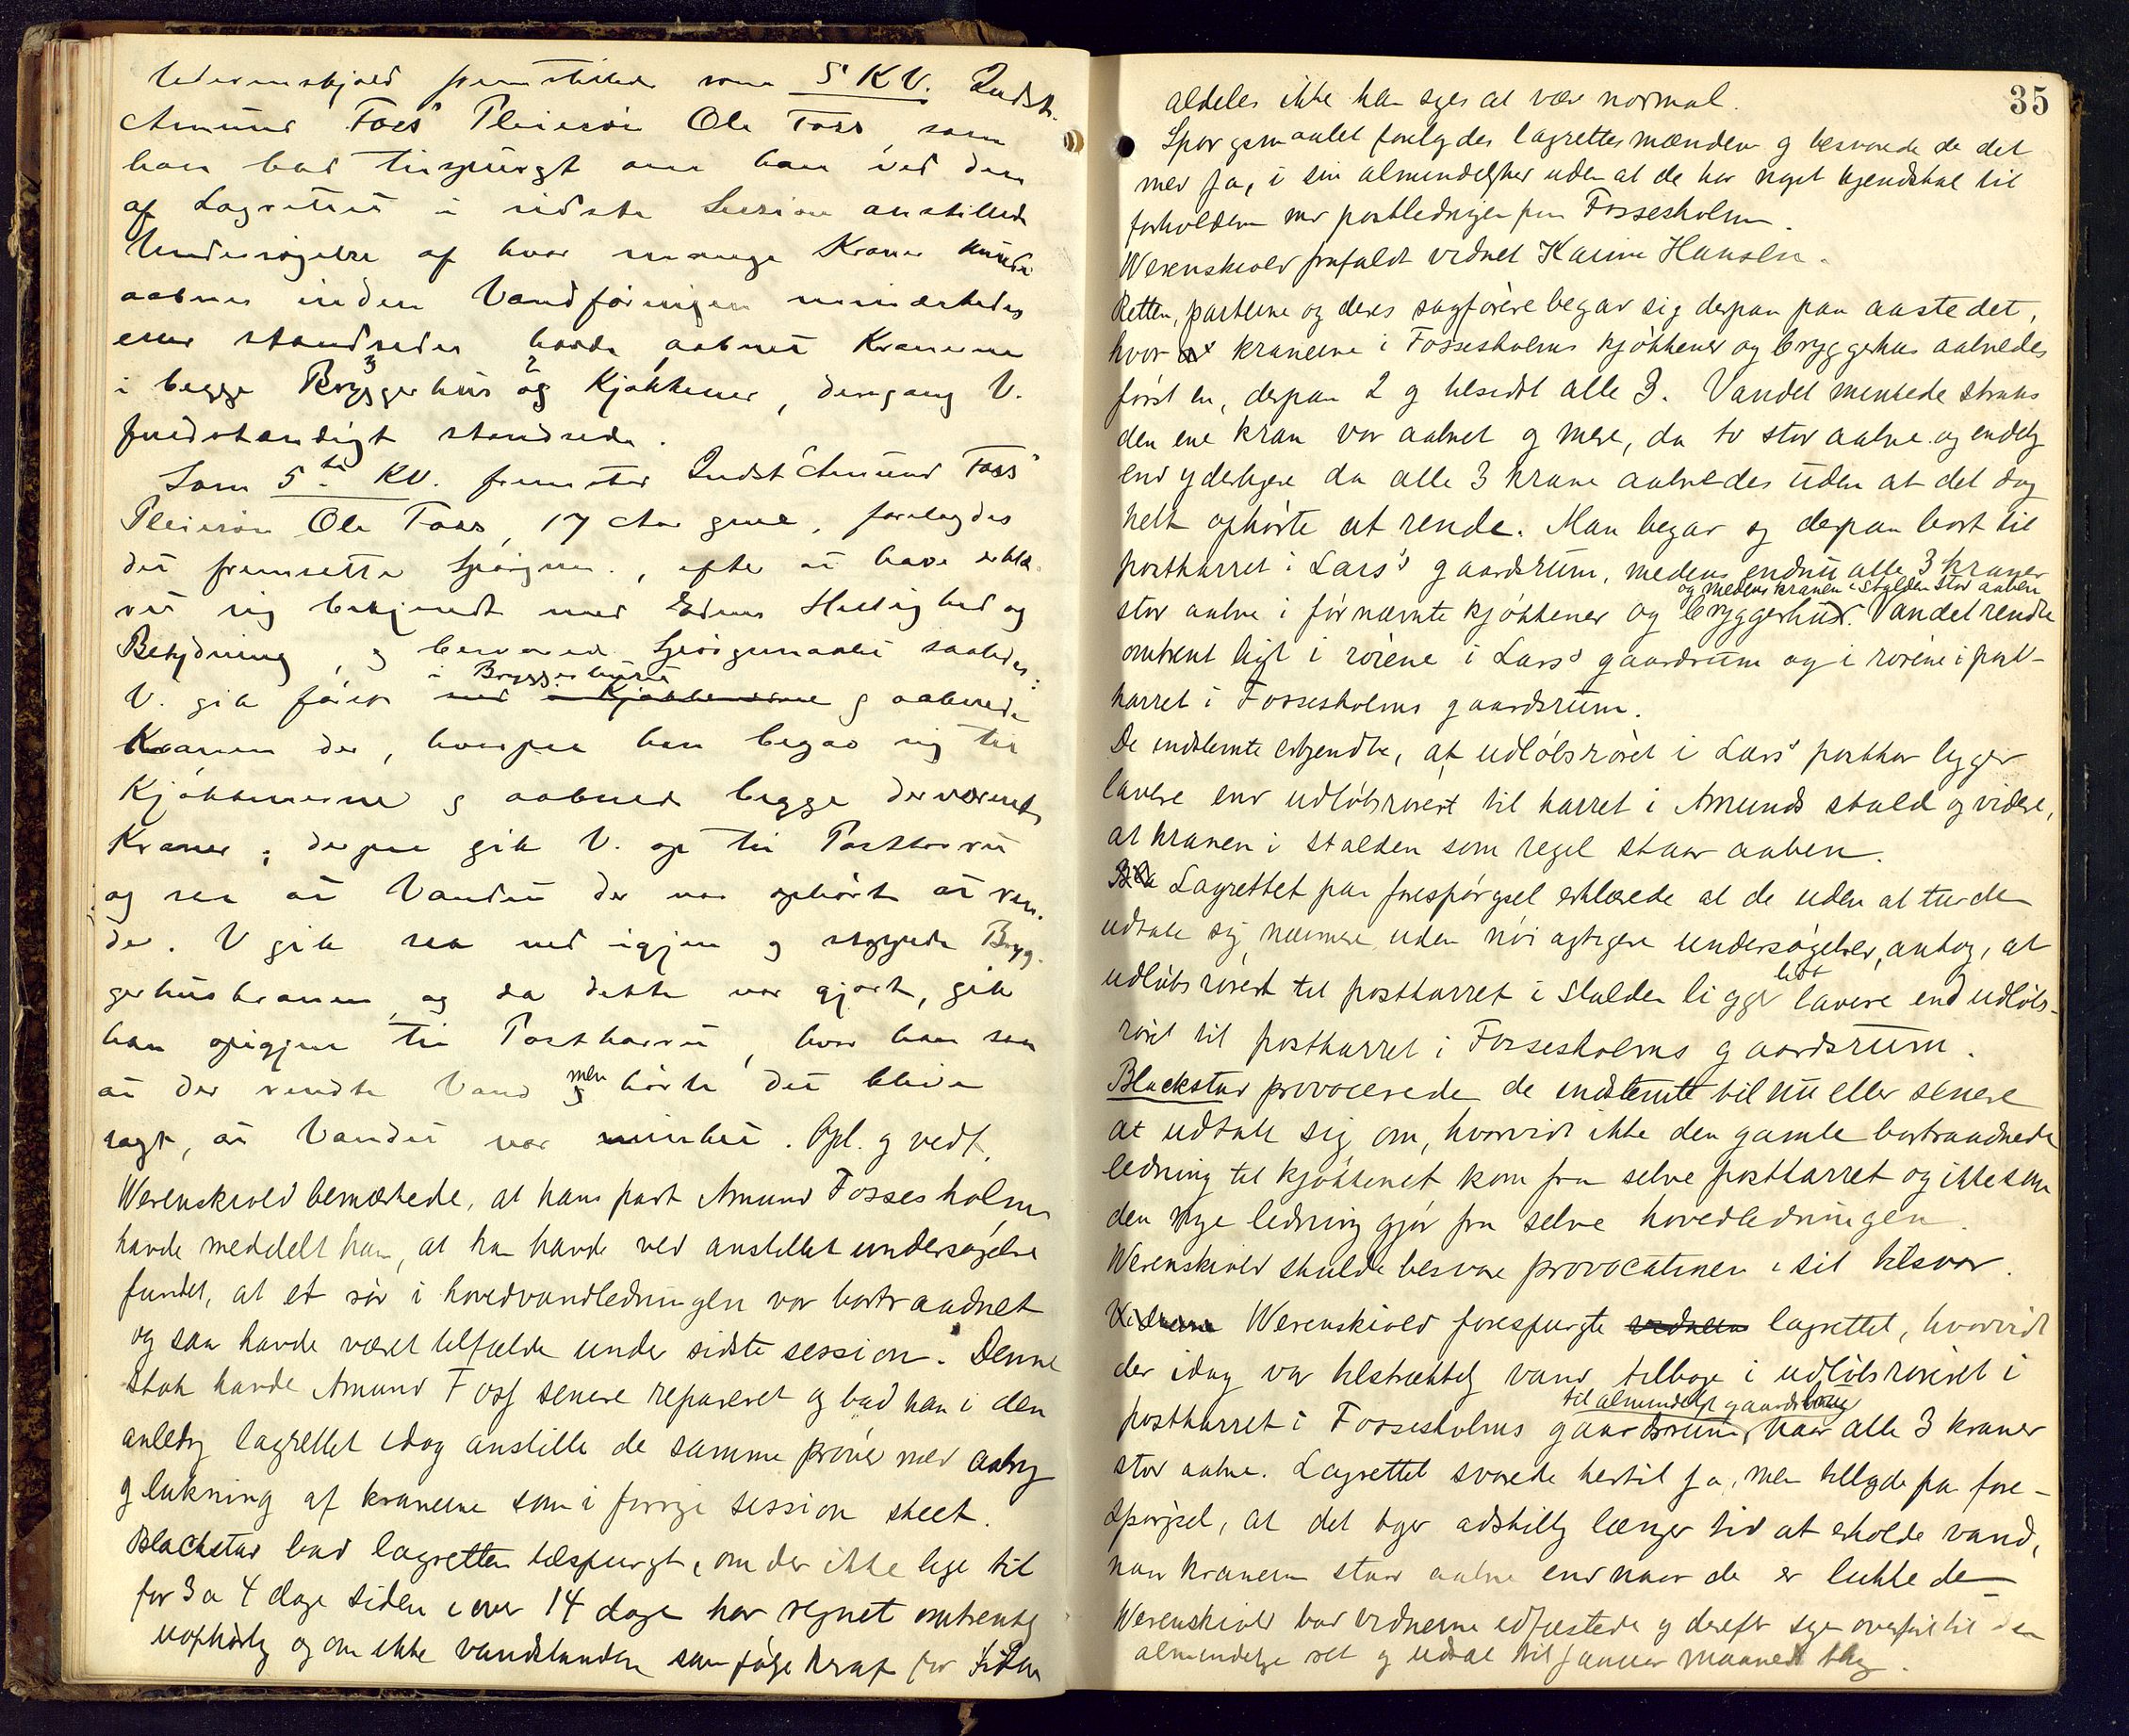 fremstillede som 5 KV. Indst.
Amund Foss' Pleiesøn Ole Foss som
han bad tilspurgt om han ved den
af Lagrettet i sidste Session anstillede
Undersøgelse af hvor mange Kraner kunde
aabnes inden Vandføringen mindskedes
eller standsedes havde aabnet Kranerne
i begge Bryggerhus og Kjøkkener, dengang V.
fuldstændigt standsede.
Som 5te KV. fremstod Indst Amund Foss'
Pleiesøn Ole Foss, 17 Aar gml, forelagdes
det fremsatte Spørgsm., efter at have erklæ-
ret sig bekjendt med Edens Hellighed og
Betydning, og besvarede Spørgsmaalet saaledes:
i Bryggerhuset
V. gik først ned i Kjøkkenerne og aabnede
Kranen der, hvorpaa han begav sig til
Kjøkkenerne og aabnede begge derværende
Kraner; derpaa gik V. op til Postkarret
og saa at Vandet der var ophørt at ren-
de. V gik saa ned igjen og stoppede Bryg-
gerhuskranen og da dette var gjort, gik
han opigjen til Postkarret, hvor han saa
at der rendte Vand men hørte det blive
sagt, at Vandet var minket. Opl. og vedt.
Werenskiold bemærkede, at hans part Amund Fossesholm
havde meddelt ham, at han havde ved anstillet undersøgelse
fundet, at et rør i hovedvandledningen var bortraadnet
og saa havde været tilfælde under sidste session. Denne
stok havde Amund Foss senere repareret og bad han i den
anledng lagrettet idag anstille de samme prøver med aabng
og lukning af kranerne som i forrige session skeet.
Blackstad bad lagretten tilspurgt, om der ikke lige til
for 3 a 4 dage siden i over 14 dage har regnet omtrentlg
uophørlg og om ikke vandstanden som følge heraf for tiden
35
aldeles ikke kan siges at være normal.
Spørgsmaalet forelagdes lagrettesmændene og besvarede de det
med Ja, i sin almindelighed uden at de har noget kjendskab til
forholdene ved postledningen paa Fossesholm.
Werenskiold frafaldt vidnet Karine Hansen.
Retten, parterne og deres sagførere begav sig derpaa paa aastedet,
hvor kranerne i Fossesholms kjøkkener og bryggerhus aabnedes
først en, derpaa 2 og tilsidst alle 3. Vandet minkede straks
den ene kran var aabnet og mere, da to stod aabne og endelg
end yderligere da alle 3 krane aabnedes uden at det dog
helt ophørte at rende. Man begav sig derpaa bort til
postkarret i Lars's gaardsrum, medens endnu alle 3 kraner
og medens kranen i stalden stod aaben
stod aabne i førnævnte kjøkkener og bryggerhus. Vandet rendte
omtrent ligt i rørene i Lars's gaardrum og i rørene i post-
karret i Fossesholms gaardsrum.
De indstemte erkjendte, at udløbsrøret i Lars' postkar ligger
lavere end udløbsrøret til karret i Amunds stald og videre,
at kranen i stalden som regel staar aaben.
Lagrettet paa forespørgsel erklærede at de uden at turde
udtale sig nærmere uden nøiagtigere undersøgelser, antog, at
lidt
udløbsrøret til postkarret i stalden ligger lavere end udløbs-
røret til postkarret i Fossesholms gaardsrum.
Blackstad provocerede de indstemte til nu eller senere
at udtale sig om, hvorvidt ikke den gamle bortraadnede
ledning til kjøkkenet kom fra selve postkarret og ikke som
den nye ledning gjør fra selve hovedledningen.
Werenskiold skulde besvare provocationen i sit tilsvar.
Vidnerne Werenskiold forespurgte vidnerne lagrettet, hvorvidt
der idag var tilstrækkelg vand tilbage i udløbsrøret i
til almindeligt gaardsbrug
postkarret i Fossesholms gaardsrum, naar alle 3 kraner
stod aabne. Lagrettet svarede hertil ja, men tillagde paa fore-
spørgsel, at det tager adskillg længer tid at erholde vand,
naar kranerne staar aabne end naar de er lukkede
Werenskiold bad vidnerne edfæstede og derefter sagen overført til den
almindelige ret og udsat til Januar maaned thg.